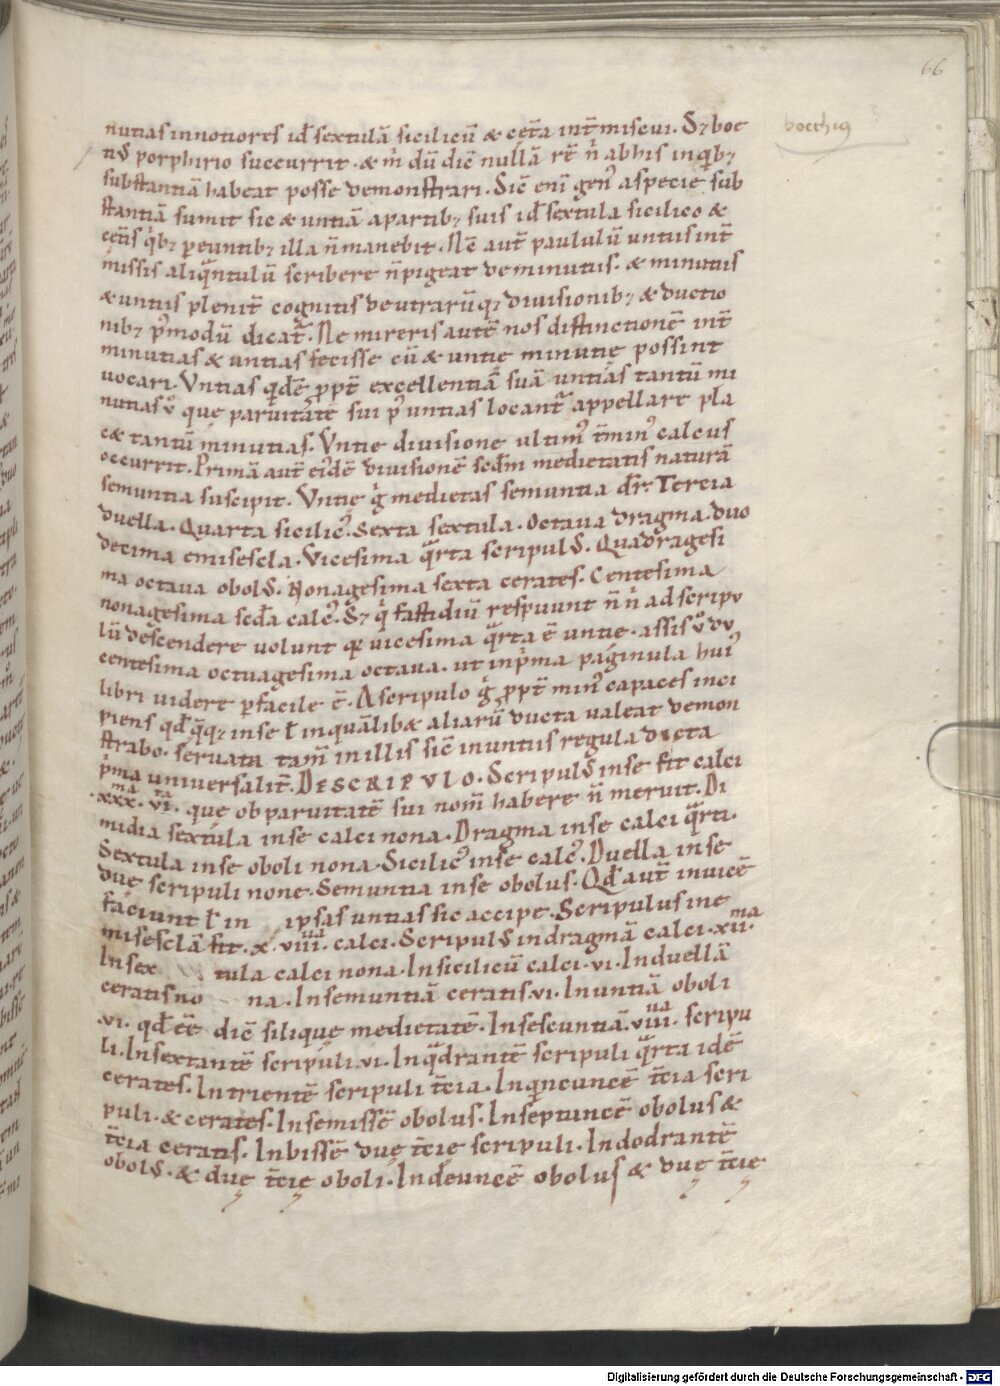 66
boethiꝰ
nutias innotiores id̄ sextulā siciliciū & cet̄a int̄miscui. Sꝫ boe
tiꝰ porphirio succurrit. & m̄ dū diē nullā rē n̄ ab his in qͥbꝫ
substantiā habeat posse demonstrari. Sic̄ eni genꝰ a specie sub
stantiā sumit sic & untiā a partibꝫ suis id̄ sextula sicilico &
cet̄is qͥbꝫ ꝑeuntibꝫ illa n̄ manebit. Nē aut̄ paululū untiis int̄
missis aliqͣntulū scribere n̄ pigeat de minutiis. & minutiis
& untiis plenit̄ cognitis de utrarūqꝫ divisionibꝫ & ductio
nibꝫ pͦmodū dicat̄. Ne mireris autē nos distinctionē int̄
minutias & untias fecisse cū & untie minutie possint
vocari. Untias qͥdē ꝓpt̄ excellentiā suā untias tantū mi
nutias ů que parvitate sui pͦ untias locant̄ appellare pla
c& tantū minutias. Untie divisione ultimꝰ t̄minꝰ calcus
occurrit. Primā aut̄ eiꝰdē divisionē scd̄m medietatis naturā
semuntia suscipit. Untie gͦ medietas semuntia dr̄. Tercia
duella. Quarta sicilicꝰ. Sexta sextula. Octava dragma. duo
decima emisescla. Vicesima qͣrta scripulꝰ. Quadragesi
ma octava obolꝰ. Nonagesima sexta cerates. Centesima
nonagesima scd̄a calcꝰ. Sꝫ qͥ fastidiū respuunt n̄ n̄ ad scripu
lū descendere volunt qͥ vicesima qͣrta ē untie. assis ů du
centesima octuagesima octava. ut in pͥma paginula huiꝰ
libri videre ꝑfacile ē. A scripulo gͦ ꝓpt̄ minꝰ capaces inci
piens qd̄ qͣqꝫ in se ł in quālib& aliarū ducta valeat demon
strabo. servata tam̄ in illis sic̄ in untiis regula dicta
pͥma universalit̄. DE SCRIPULO. Scripulꝰ in se fit calci
.xxx.ma vi.ta que ob parvitatē sui nom̄ habere n̄ meruit. Di
midia sextula in se calci nona. Dragma in se calci qͣrta.
Sextula in se oboli nona. Sicilicꝰ in se calcꝰ. Duella in se
due scripuli none. Semuntia in se obolus. Qd̄ aut̄ invicē
faciunt ł in ipsas untias sic accipe. Scripulus in e
misesclā fit .x.viii.ua calci. Scripulꝰ in dragmā calci .xii.ma
In sex tula calci nona. In siciliciū calci .vi. In duellā
ceratis no na. In semuntiā ceratis .vi. In untiā oboli
.vi. qd̄ eē diē silique medietatē. In sescuntiā .viii.ua scripu
li. In sextantē scripuli .vi. In qͣdrantē scripuli qͣrta idē
cerates. In trientē scripuli t̄cia. In qͥncuncē t̄cia scri
puli. & cerates. In semissē obolus. In septuncē obolus &
t̄cia ceratis. In bissē duę t̄cię scripuli. In dodrantē
obolꝰ. & duę t̄cię oboli. In deuncē obolus & duę t̄cię
Digitalisierung gefördert durch die Deutsche Forschungsgemeinschaft - DFG